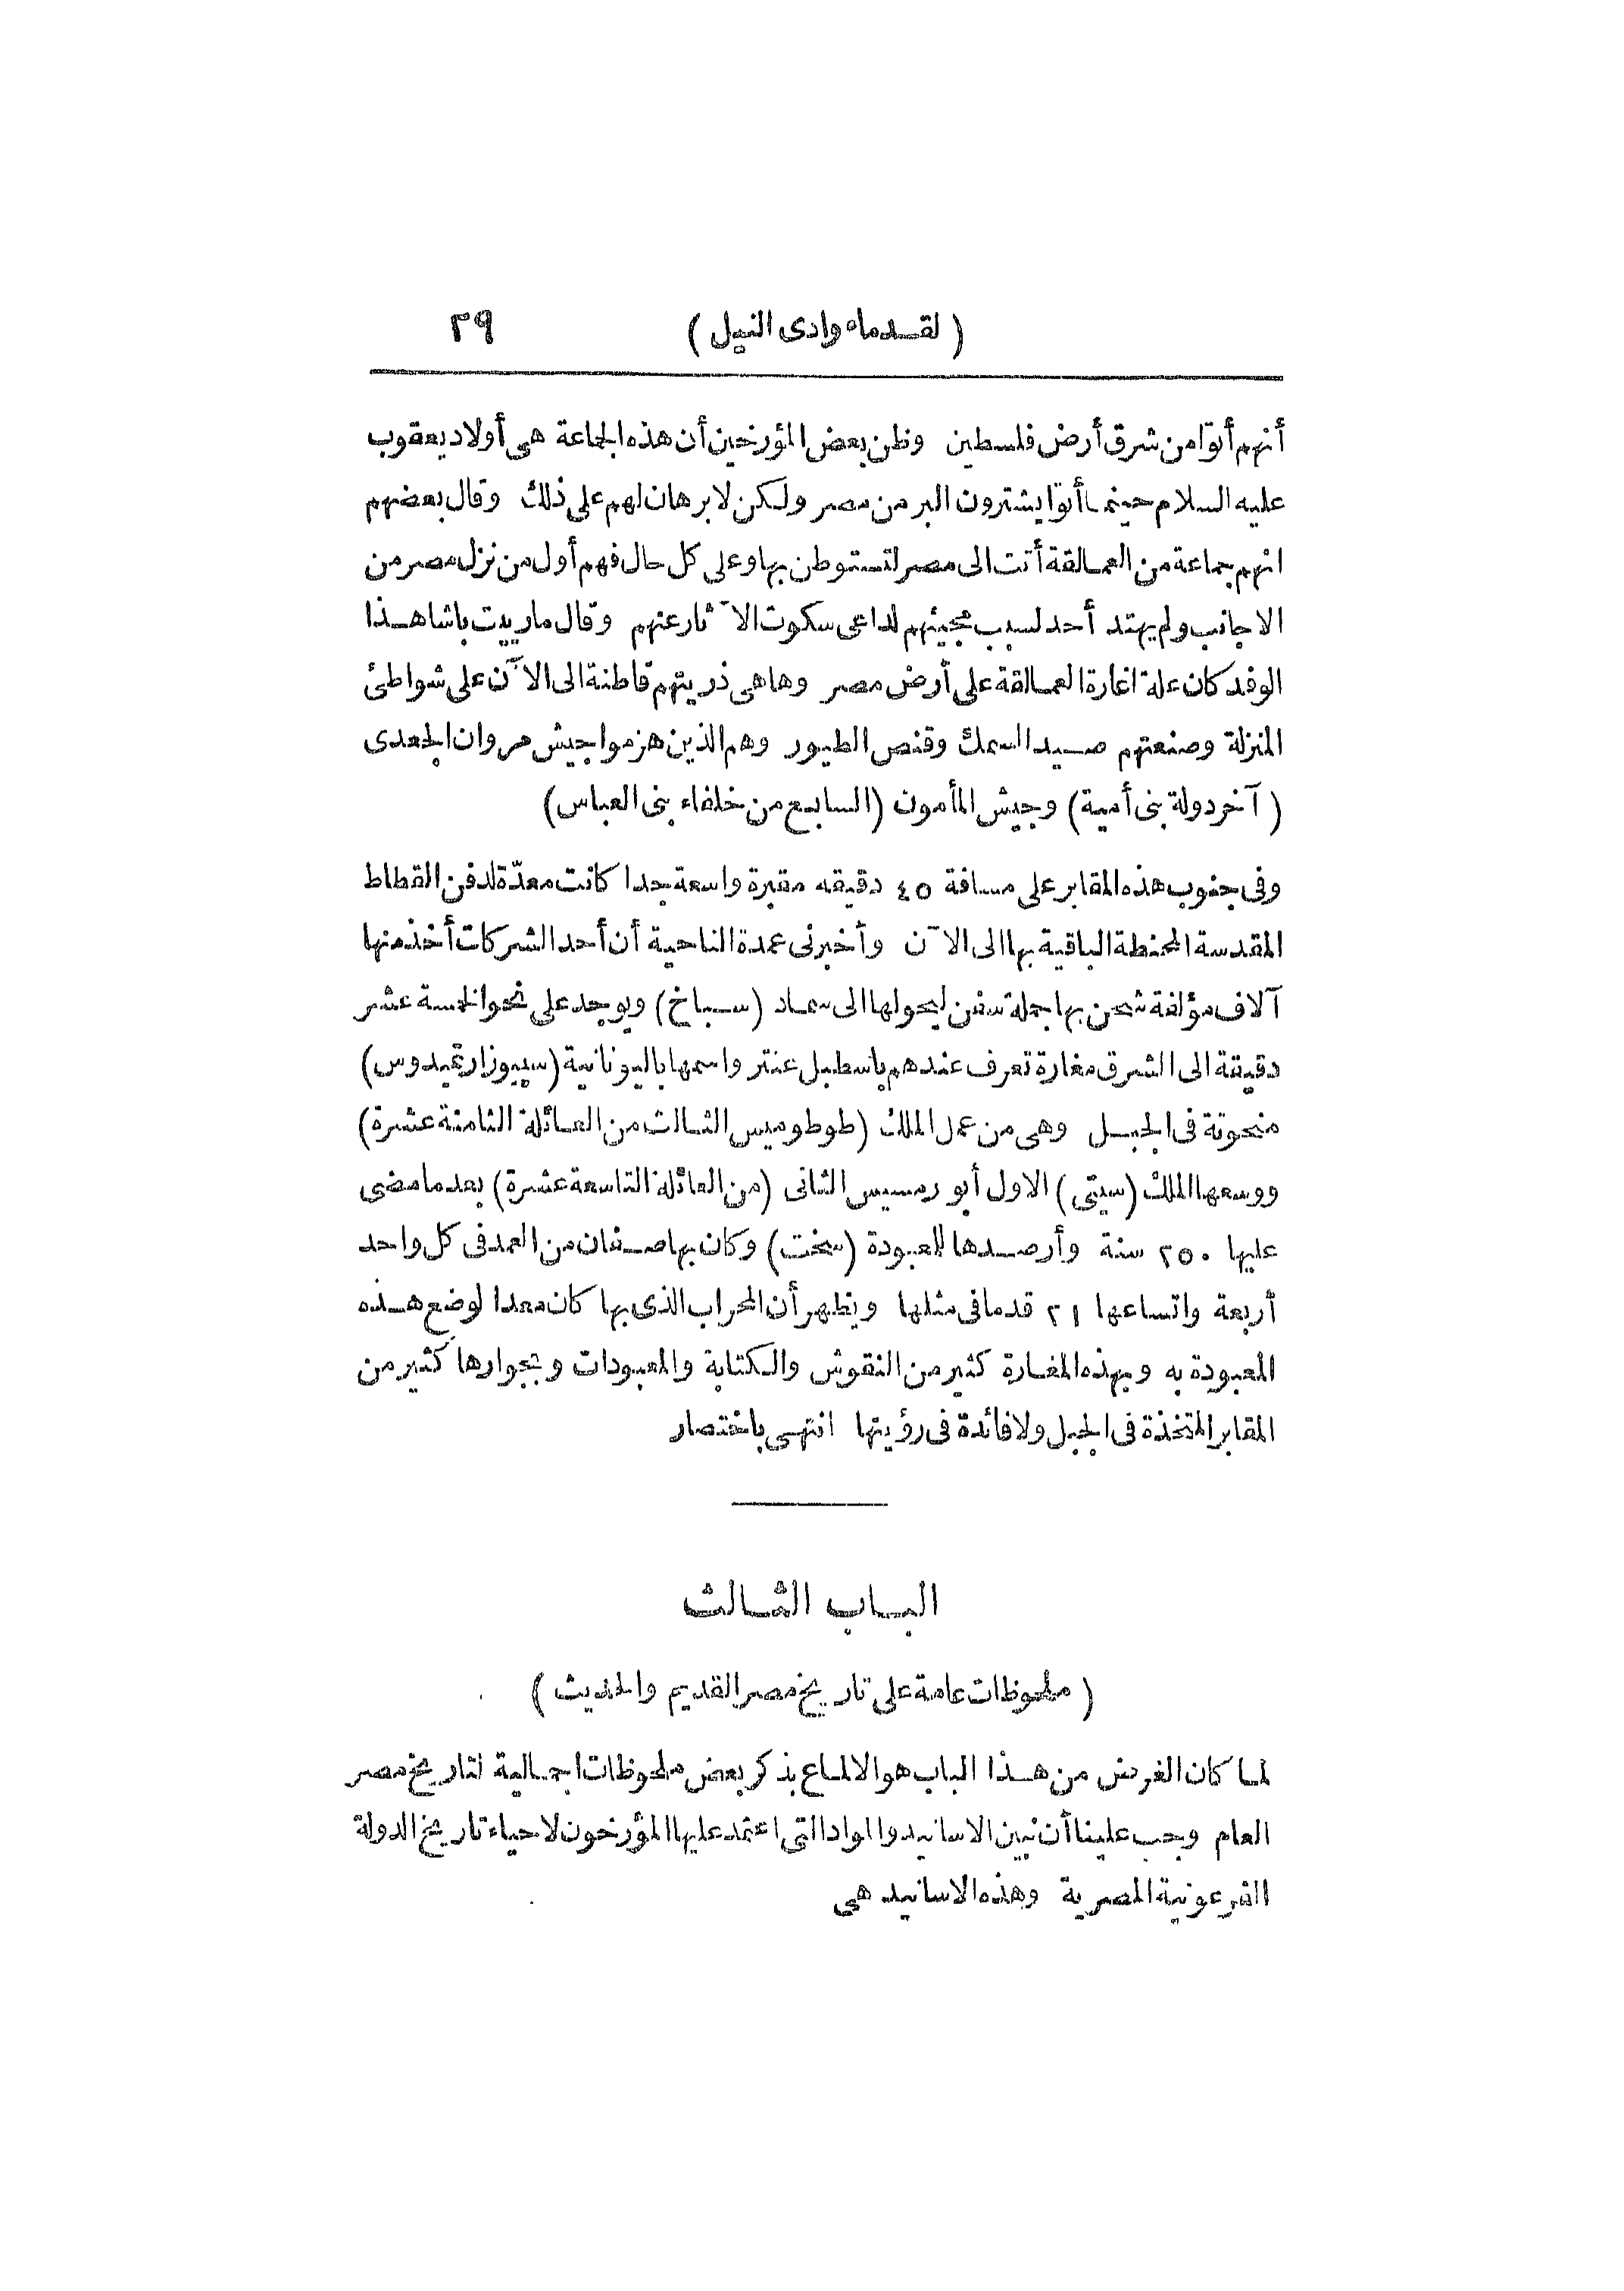 ( لقدماء وادى النيل ) ٢٩
أنهم أتوا من شرق أرض فلسطين وظن بعض المؤرخين أن هذه الجماعة هى أولاد يعقوب
عليه السلام حينما أتوا يشترون البر من مصر ولكن لا برهان لهم على ذلك وقال بعضهم
انهم جماعة من العمالقة أتت الى مصر لتستوطن بها وعلى كل حال فهم أول من نزل مصر من
الاجانب ولم يهتد أحد لسبب مجيئهم لداعى سكوت الآثار عنهم وقال مارييت باشا هذا
الوفد كان علة اغارة العمالقة على أرض مصر وها هى ذريتهم قاطنة الى الآن على شواطئ
المنزلة وصنعتهم صيد السمك وقنص الطيور وهم الذين هزموا جيش مروان الجعدى
( آخر دولة بنى أمية ) وجيش المأمون (السابع من خلفاء بنى العباس)
وفى جنوب هذه المقابر على مسافة ٤٥ دقيقه مقبرة واسعة جدا كانت معدّة لدفن القطاط
المقدسة المحنطة الباقية بها الى الآن وأخبرنى عمدة الناحية أن أحد الشركات أخذ منها
آلاف مؤلفة شحن بها جملة سفن ليحولها الى سماد (سباخ) ويوجد على نحو الخمسة عشر
دقيقة الى الشرق مغارة تعرف عندهم باسطبل عنتر واسمها باليونانية (سپيوزارتميدوس)
منحوتة فى الجبل وهى من عمل الملك (طوطوميس الثالث من العائلة الثامنة عشرة)
ووسعها الملك (سيتى) الاول أبو رمسيس الثانى (من العائلة التاسعة عشرة) بعد ما مضى
عليها ٢٥٠ سنة وأرصدها للمعبودة (سخت) وكان بها صفان من العمد فى كل واحد
أربعة واتساعها ٢١ قدما فى مثلها ويظهر أن المحراب الذى بها كان معدا لوضع هذه
المعبودة به وبهذه المغارة كثير من النقوش والكتابة والمعبودات وبجوارها كثير من
المقابر المتخذة فى الجبل ولا فائدة فى رؤيتها انتهى باختصار
الباب الثالث
( ملحوظات عامة على تاريخ مصر القديم والحديث )
لما كان الغرض من هذا الباب هو الالماع بذكر بعض ملحوظات اجمالية لتاريخ مصر
العام وجب علينا أن نبين الاسانيد والمواد التى اعتمد عليها المؤرخون لاحياء تاريخ الدولة
الفرعونية المصرية وهذه الاسانيد هى